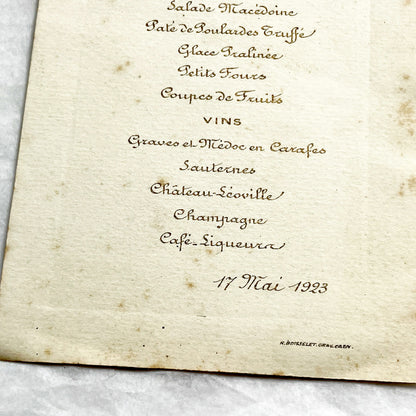 Salade Macédoine
Paté de Poulardes Truffé
Glace Pralinée
Petits Fours
Coupes de Fruits
VINS
Graves et Médoc en Carafes
Sauternes
Château-Léoville
Champagne
Café-Liqueurs
17 Mai 1923
R. BOISSELET. GRAV. CAEN.